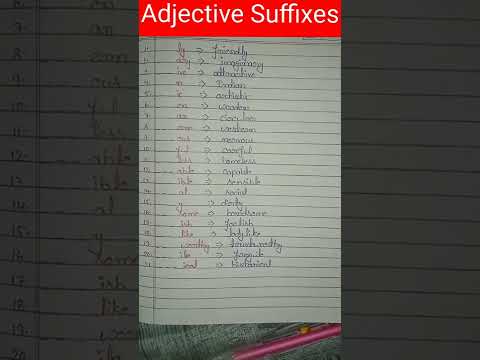 Adjective Suffixes
1. ly → friendly
2. ary → imaginary
3. ive → attractive
4. n → Indian
5. ic → artistic
6. en → wooden
7. ar → circular
8. ern → western
9. ous → nervous
10. ful → careful
11. less → homeless
12. able → capable
13. ible → sensible
14. al → social
15. y → dirty
16. some → handsome
17. ish → foolish
18. like → ladylike
19. worthy → trustworthy
20. ile → fragile
21. ical → historical